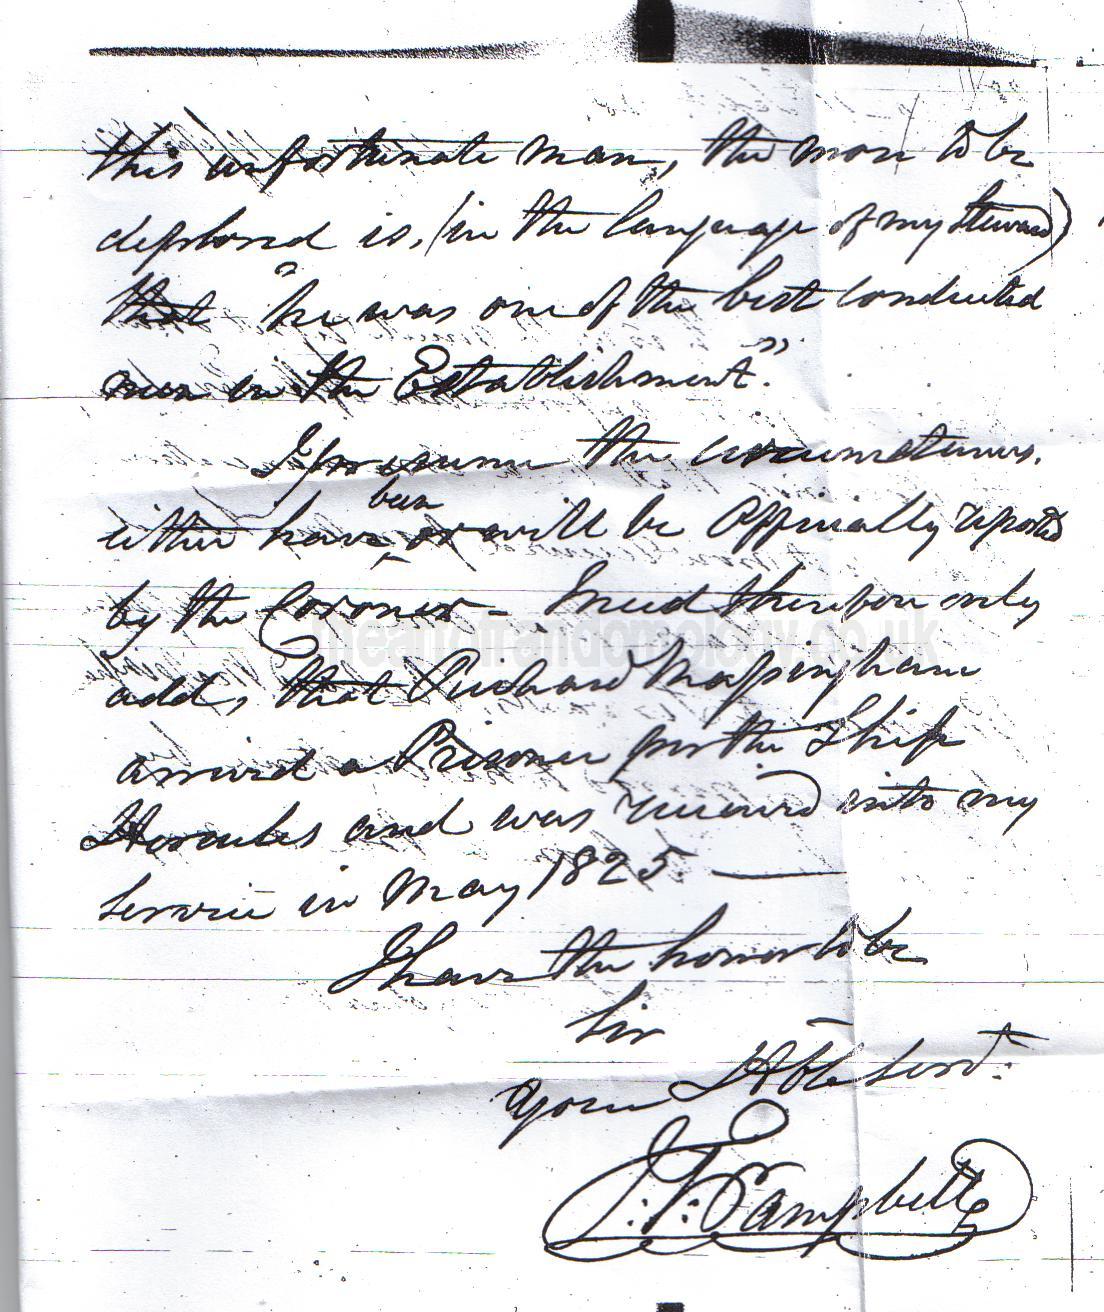 this unfortunate man, the more to be
deplored is, (in the language of my Steward)
that "he was one of the best conducted
men in the Establishment".
I presume the circumstances,
either have been or will be Officially reported
by the Coroner – I need therefore only
add, that Richard Mappingham
arrived a Prisoner per the Ship
Hercules and was received into my
service in May 1825 —
I have the honor to be
Sir
Your Hble Servt.
J: F: Campbell
theartofrandomology.co.uk